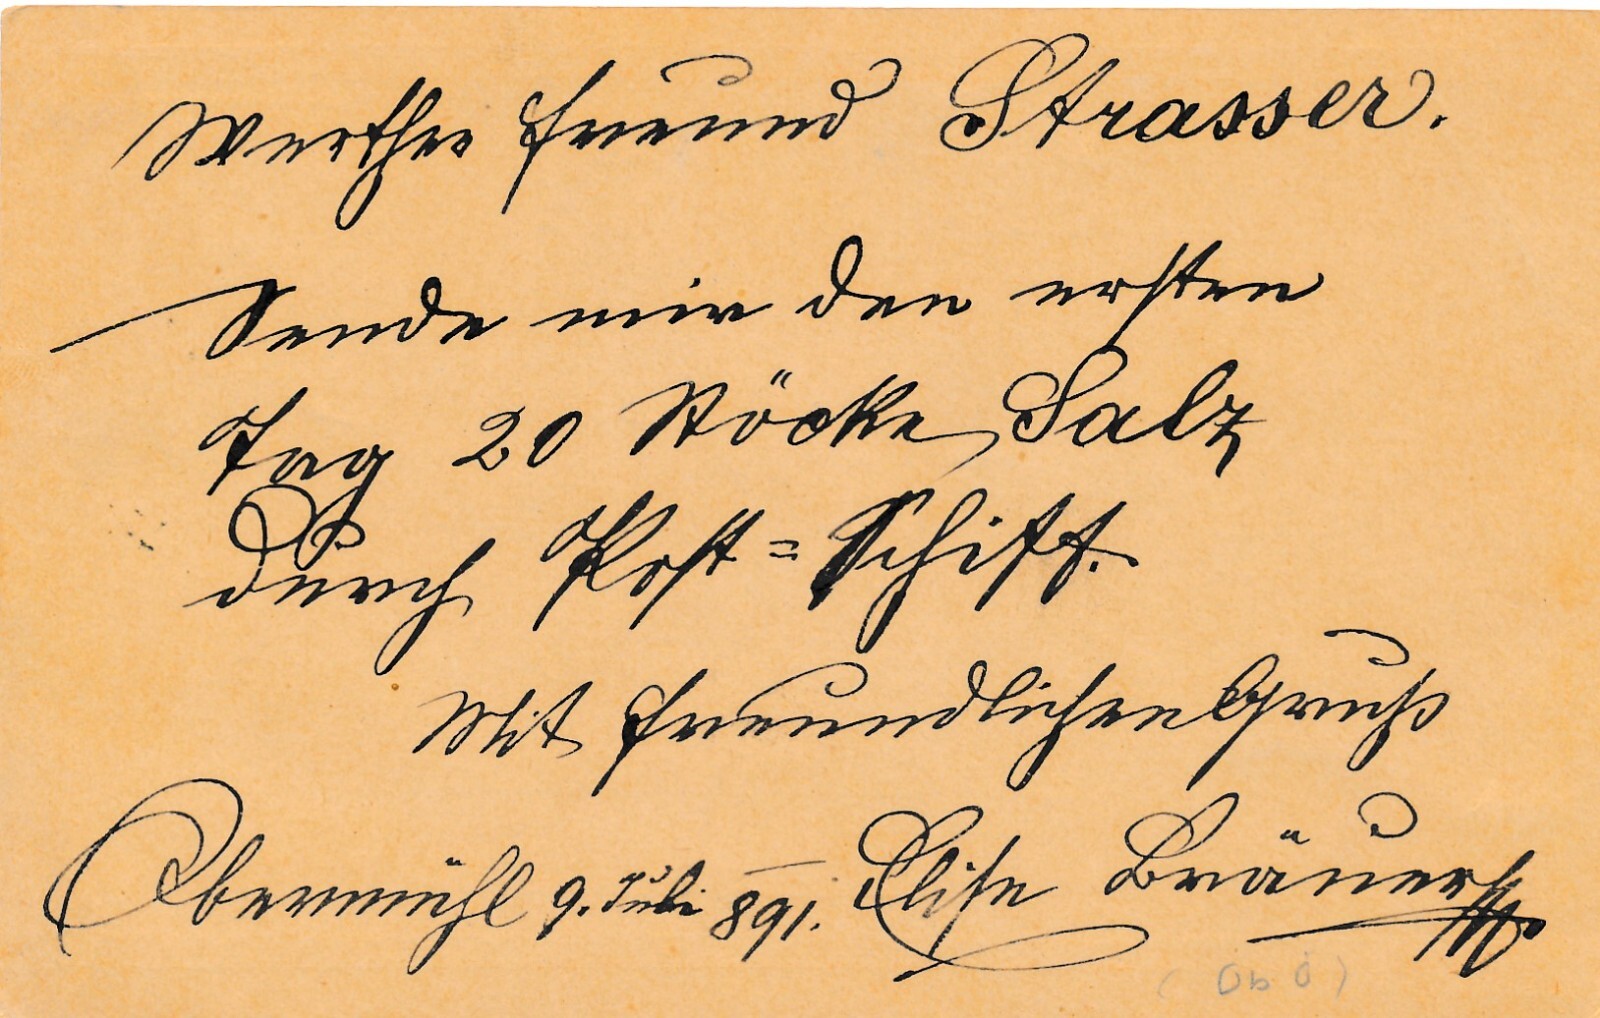 Werther Freund Strasser.
Sende mir den ersten
Tag 20 Stöcke Salz
durch Post=Schiff.
Mit freundlichen Gruß
Obermühl 9. Juli 891. Elise Bräuer
(Ob Ö)